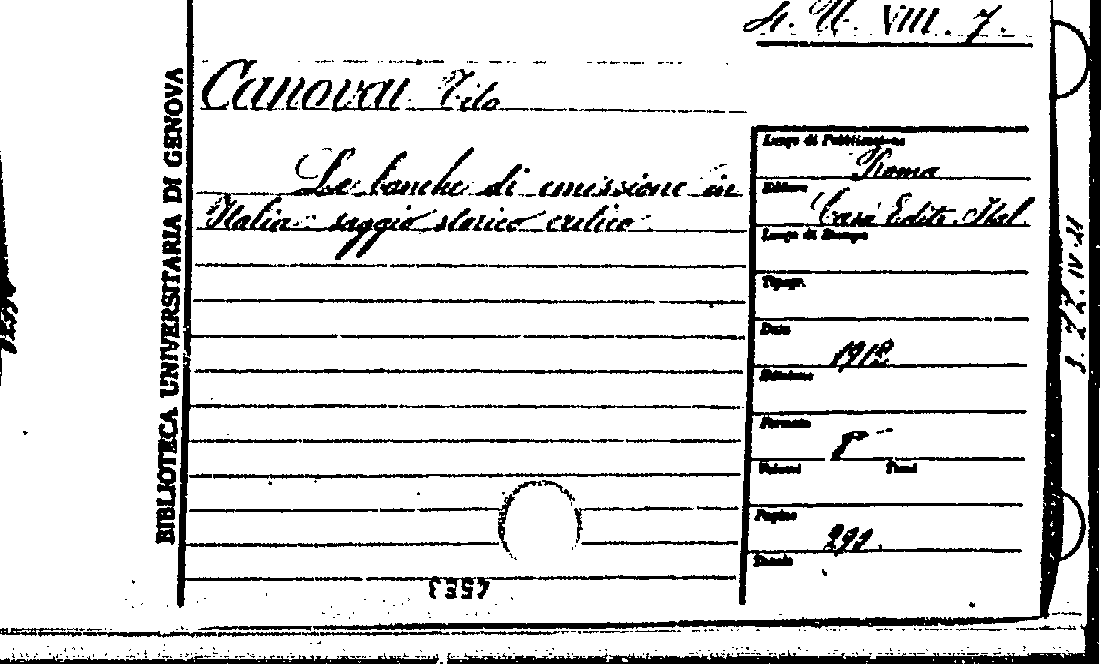 4. U. VIII. 7.
Canovai Tito
Le banche di emissione in
Italia: saggio storico critico
BIBLIOTECA UNIVERSITARIA DI GENOVA
Luogo di Pubblicazione
Roma
Editore
Casa Edit. Ital.
Luogo di Stampa
Tipogr.
Data
1912
Edizione
Formato
8°
Volumi Tomi
Pagine
291.
4583